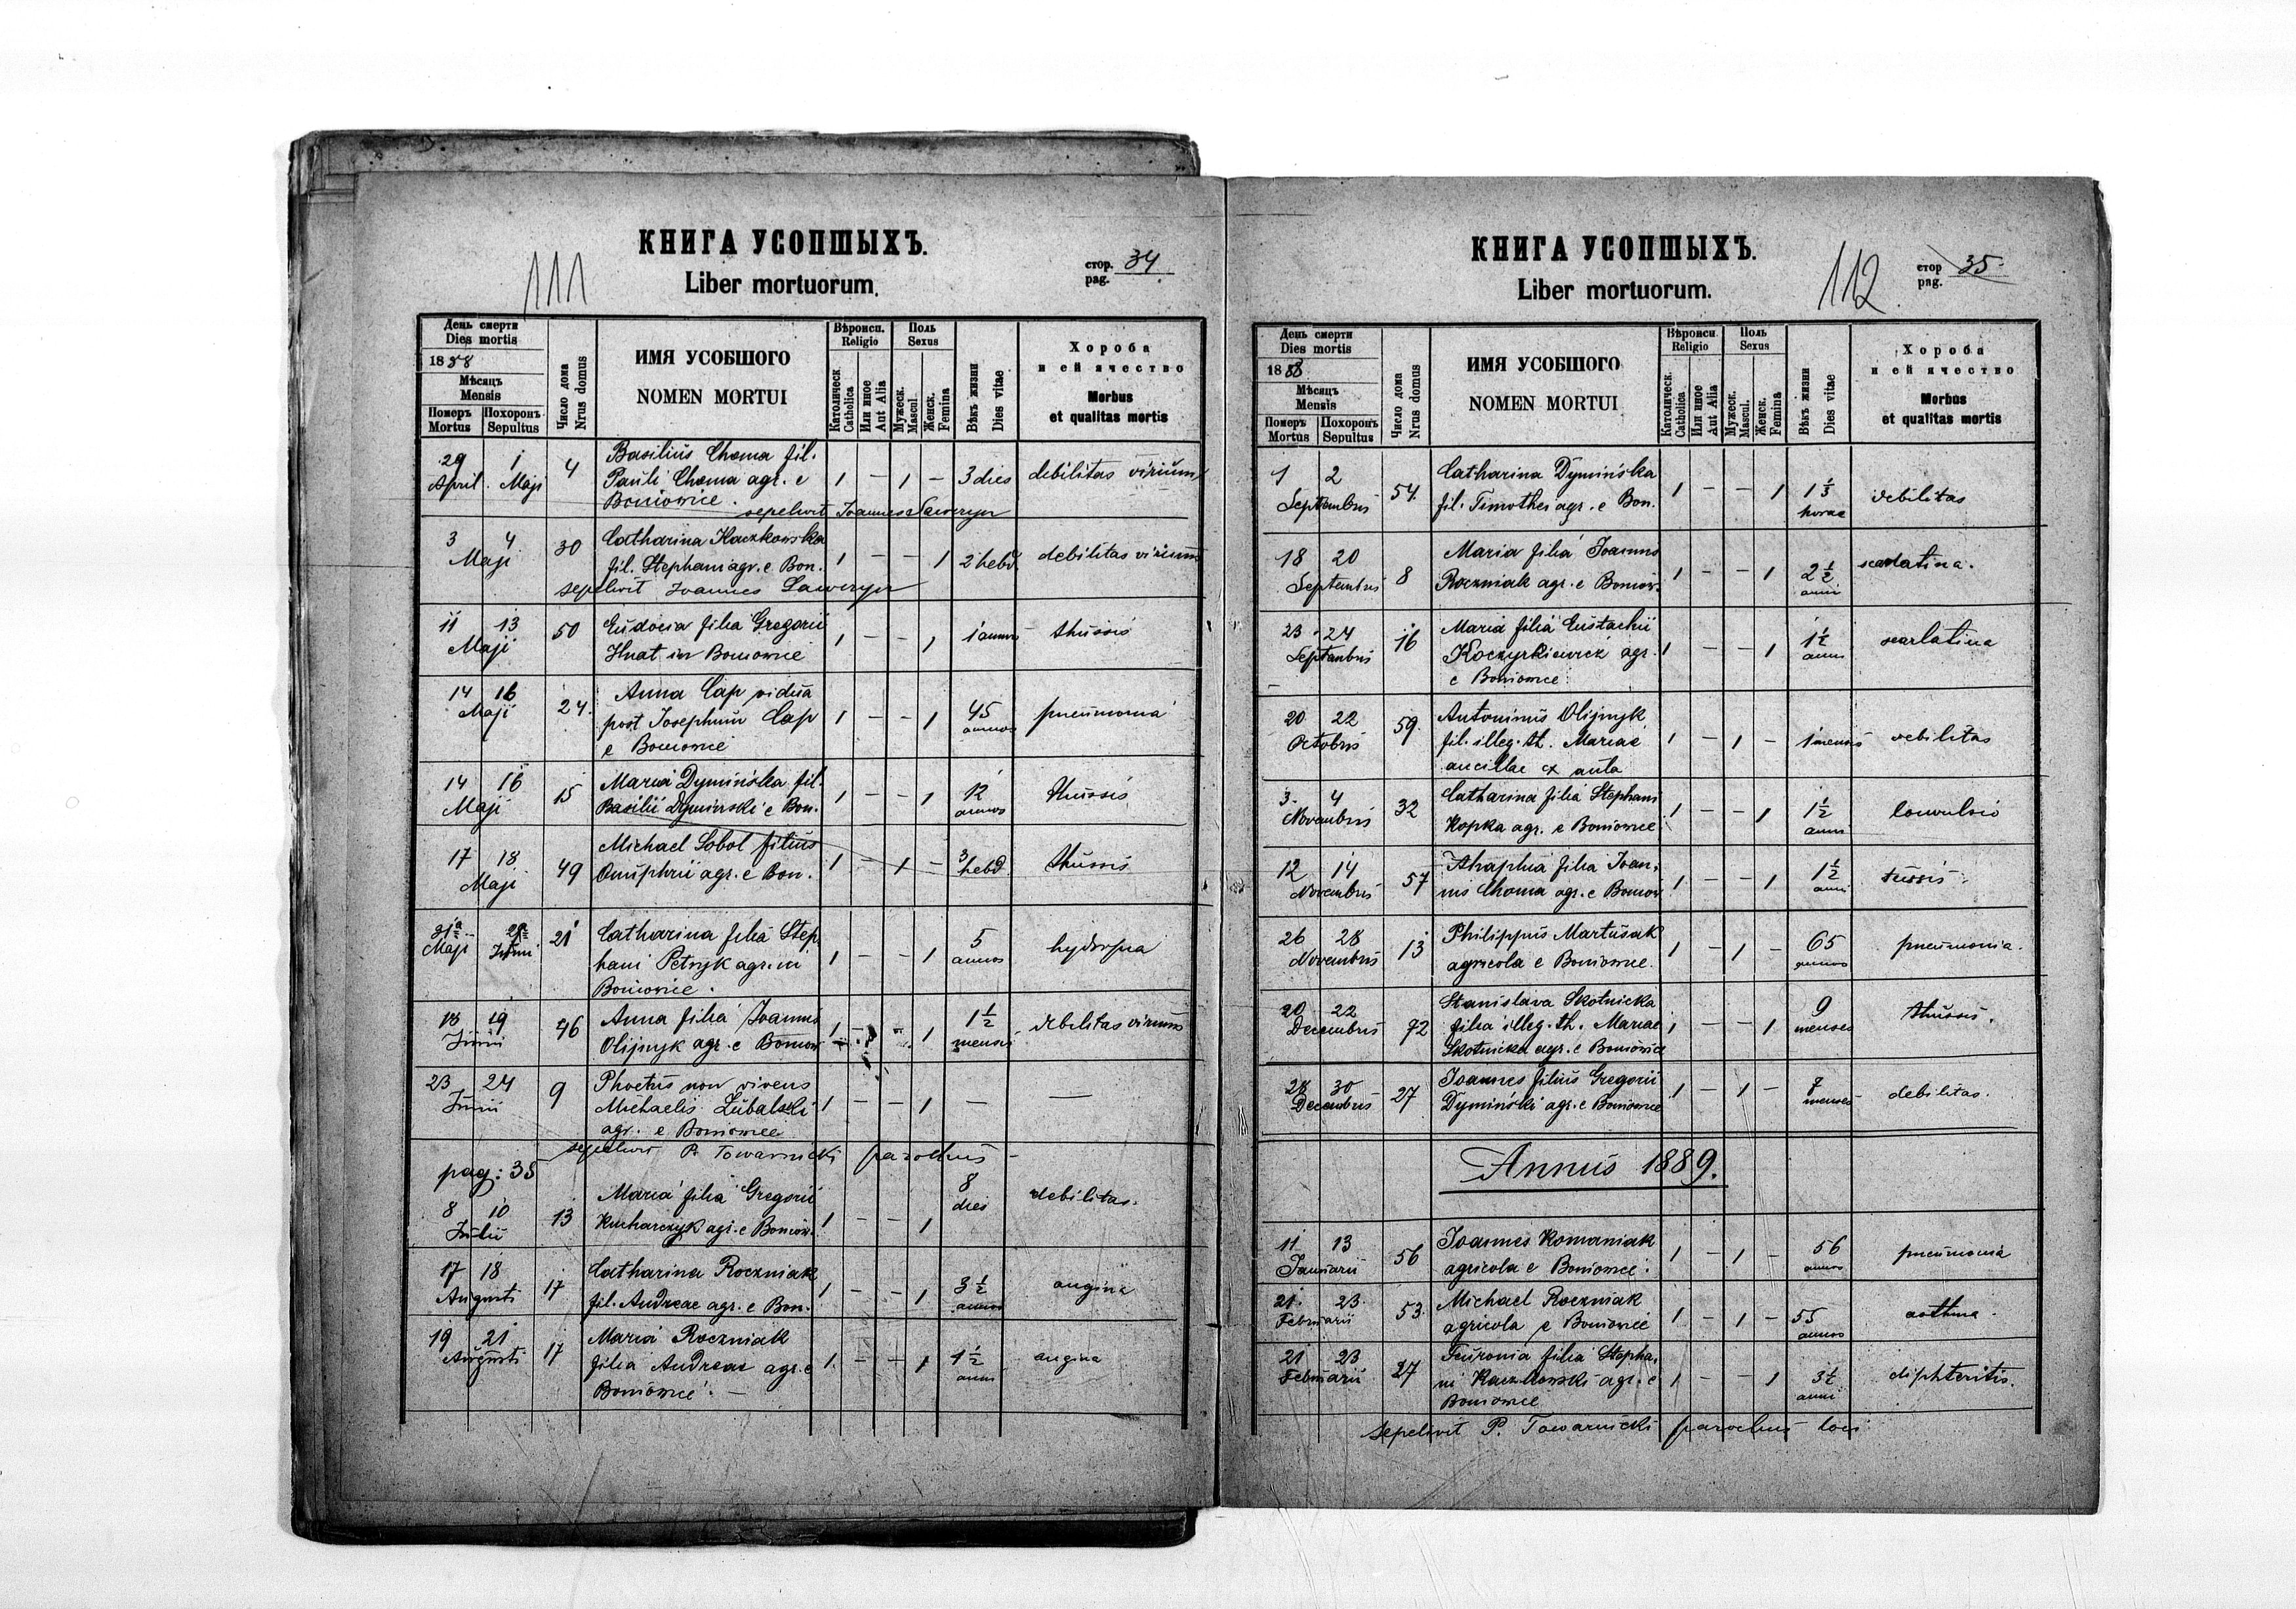 КНИГА УСОПШЫХЪ.
Liber mortuorum.
111
стор. pag. 34
День смерти
Dies mortis
1888
Мѣсяцъ
Mensis
Померъ Mortus
Похоронъ Sepultus
Число дома
Nrus domus
ИМЯ УСОБШОГО
NOMEN MORTUI
Вѣроисп.
Religio
Католическ
Catholica
Или иное
Aut Alia
Поль
Sexus
Мужеск.
Mascul.
Женск.
Femina
Вѣкъ жизни
Dies vitae
Хороба
и ей ячество
Morbus
et qualitas mortis
29 1 4 Basilius Choma fil.
April. Maji Pauli Choma agr. e 1 – 1 – 3 dies debilitas virium
Boniowice.
sepelivit Joannes Laweryn
3 4 30 Catharina Kaczkowska
Maji fil. Stephani agr. e Bon. 1 – – 1 2 hebd. debilitas virium
sepelivit Joannes Laweryn
11 13 50 Eudocia filia Gregorii
Maji Hnat in Boniowice 1 – – 1 1 annus thussis
14 16 24. Anna Cap vidua
Maji post Josephum Cap 1 – – 1 45 annos pneumonia
e Boniowice
14 16 15 Maria Dymińska fil.
Maji Basilii Dyminski e Bon. 1 – – 1 12 annos thussis
17 18 49 Michael Sobol filius
Maji Onuphrii agr. e Bon. 1 – 1 – 3 hebd. thussis
31 2 21 Catharina filia Step
Maji Junii hani Petryk agr. in 1 – – 1 5 annos hydropia
Boniowice.
18 19 46 Anna filia Joannis
Junii Olijnyk agr. e Boniow 1 – – 1 1 1/2 mensis debilitas virium
23 24 9 Phoetus non vivens
Junii Michaelis Lubalski 1 – – 1 – –
agr. e Boniowice
sepelivit P. Towarnicki parochus
pag: 35
8 10 13 Maria filia Gregorii
Julii Kucharczyk agr. e Boniow. 1 – – 1 8 dies debilitas.
17 18 17 Catharina Roczniak
Augusti fil. Andreae agr. e Bon. 1 – – 1 3 1/2 annos angina
19 21 17 Maria Roczniak
Augusti filia Andreae agr. e 1 – – 1 1 1/2 anni angina
Boniowice. –
КНИГА УСОПШЫХЪ.
Liber mortuorum.
112
стор pag. 35
День смерти
Dies mortis
1888
Мѣсяцъ
Mensis
Померъ Mortus
Похоронъ Sepultus
Число дома
Nrus domus
ИМЯ УСОБШОГО
NOMEN MORTUI
Вѣроисп.
Religio
Католическ.
Catholica
Или иное
Aut Alia
Поль
Sexus
Мужеск.
Mascul.
Женск.
Femina
Вѣкъ жизни
Dies vitae
Хороба
и ей ячество
Morbus
et qualitas mortis
1 2 54. Catharina Dymińska
Septembris fil. Timothei agr. e Bon. 1 – – 1 1 1/3 horae debilitas
18 20 8 Maria filia Joannis
Septembris Roczniak agr. e Boniow. 1 – – 1 2 1/2 anni scarlatina.
23 24 16 Maria filia Eustachii
Septembris Koczyrkiewicz agr. 1 – – 1 1 1/2 anni scarlatina
e Boniowice
20 22 59. Antonius Olijnyk
Octobris fil. illeg. th. Mariae 1 – 1 – 1 mensis debilitas
ancillae ex aula
3. 4 32 Catharina filia Stephani
Novembris Kopka agr. e Boniowice 1 – – 1 1 1/2 anni convulsio
12 14 57 Ahaphia filia Joan-
Novembris nis Choma agr. e Boniow 1 – – 1 1 1/2 anni tussis
26 28 13 Philippus Martusak
Novembris agricola e Boniowice. 1 – 1 – 65 annos pneumonia.
20 22 72 Stanislava Skotnicka
Decembris filia illeg. th. Mariae 1 – – 1 9 menses thussis.
Skotnicka agr. e Boniowice
28 30 27 Joannes filius Gregorii
Decembris Dymiński agr. e Boniowice 1 – 1 – 7 menses debilitas.
Annus 1889.
11 13 56 Joannes Romaniak
Januarii agricola e Boniowice. 1 – 1 – 56 annos pneumonia
21. 23. 53. Michael Roczniak
Februarii agricola e Boniowice 1 – 1 – 55 annos asthma.
21 23 27 Feuronia filia Stepha-
Februarii ni Kaczkowski agr. e 1 – – 1 3 1/2 anni diphteritis.
Boniowice
sepelivit P. Towarnicki parochus loci